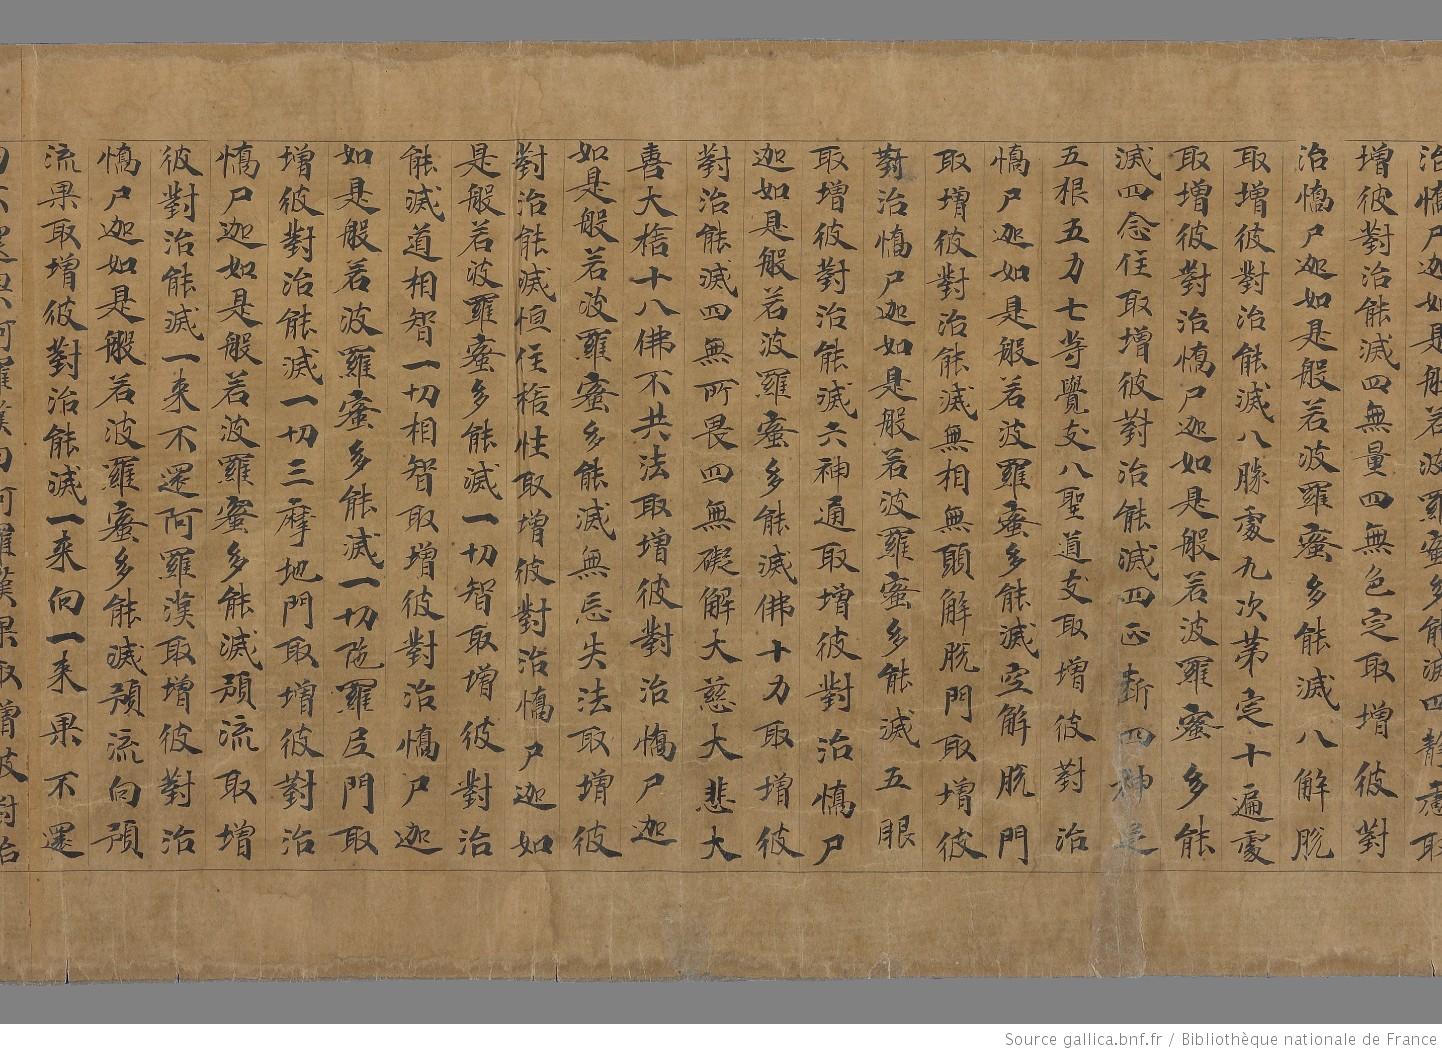 治憍尸迦如是般若波羅蜜多能滅四靜慮取
增彼對治能滅四無量四無色定取增彼對
治憍尸迦如是般若波羅蜜多能滅八解脫
取增彼對治能滅八勝處九次第定十遍處
取增彼對治憍尸迦如是般若波羅蜜多能
滅四念住取增彼對治能滅四正斷四神足
五根五力七等覺支八聖道支取增彼對治
憍尸迦如是般若波羅蜜多能滅空解脫門
取增彼對治能滅無相無願解脫門取增彼
對治憍尸迦如是般若波羅蜜多能滅五眼
取增彼對治能滅六神通取增彼對治憍尸
迦如是般若波羅蜜多能滅佛十力取增彼
對治能滅四無所畏四無礙解大慈大悲大
喜大捨十八佛不共法取增彼對治憍尸迦
如是般若波羅蜜多能滅無忘失法取增彼
對治能滅恒住捨性取增彼對治憍尸迦如
是般若波羅蜜多能滅一切智取增彼對治
能滅道相智一切相智取增彼對治憍尸迦
如是般若波羅蜜多能滅一切陁羅尼門取
增彼對治能滅一切三摩地門取增彼對治
憍尸迦如是般若波羅蜜多能滅預流取增
彼對治能滅一來不還阿羅漢取增彼對治
憍尸迦如是般若波羅蜜多能滅預流向預
流果取增彼對治能滅一來向一來果不還
向不還果阿羅漢向阿羅漢果取增彼對治
Source gallica.bnf.fr / Bibliothèque nationale de France